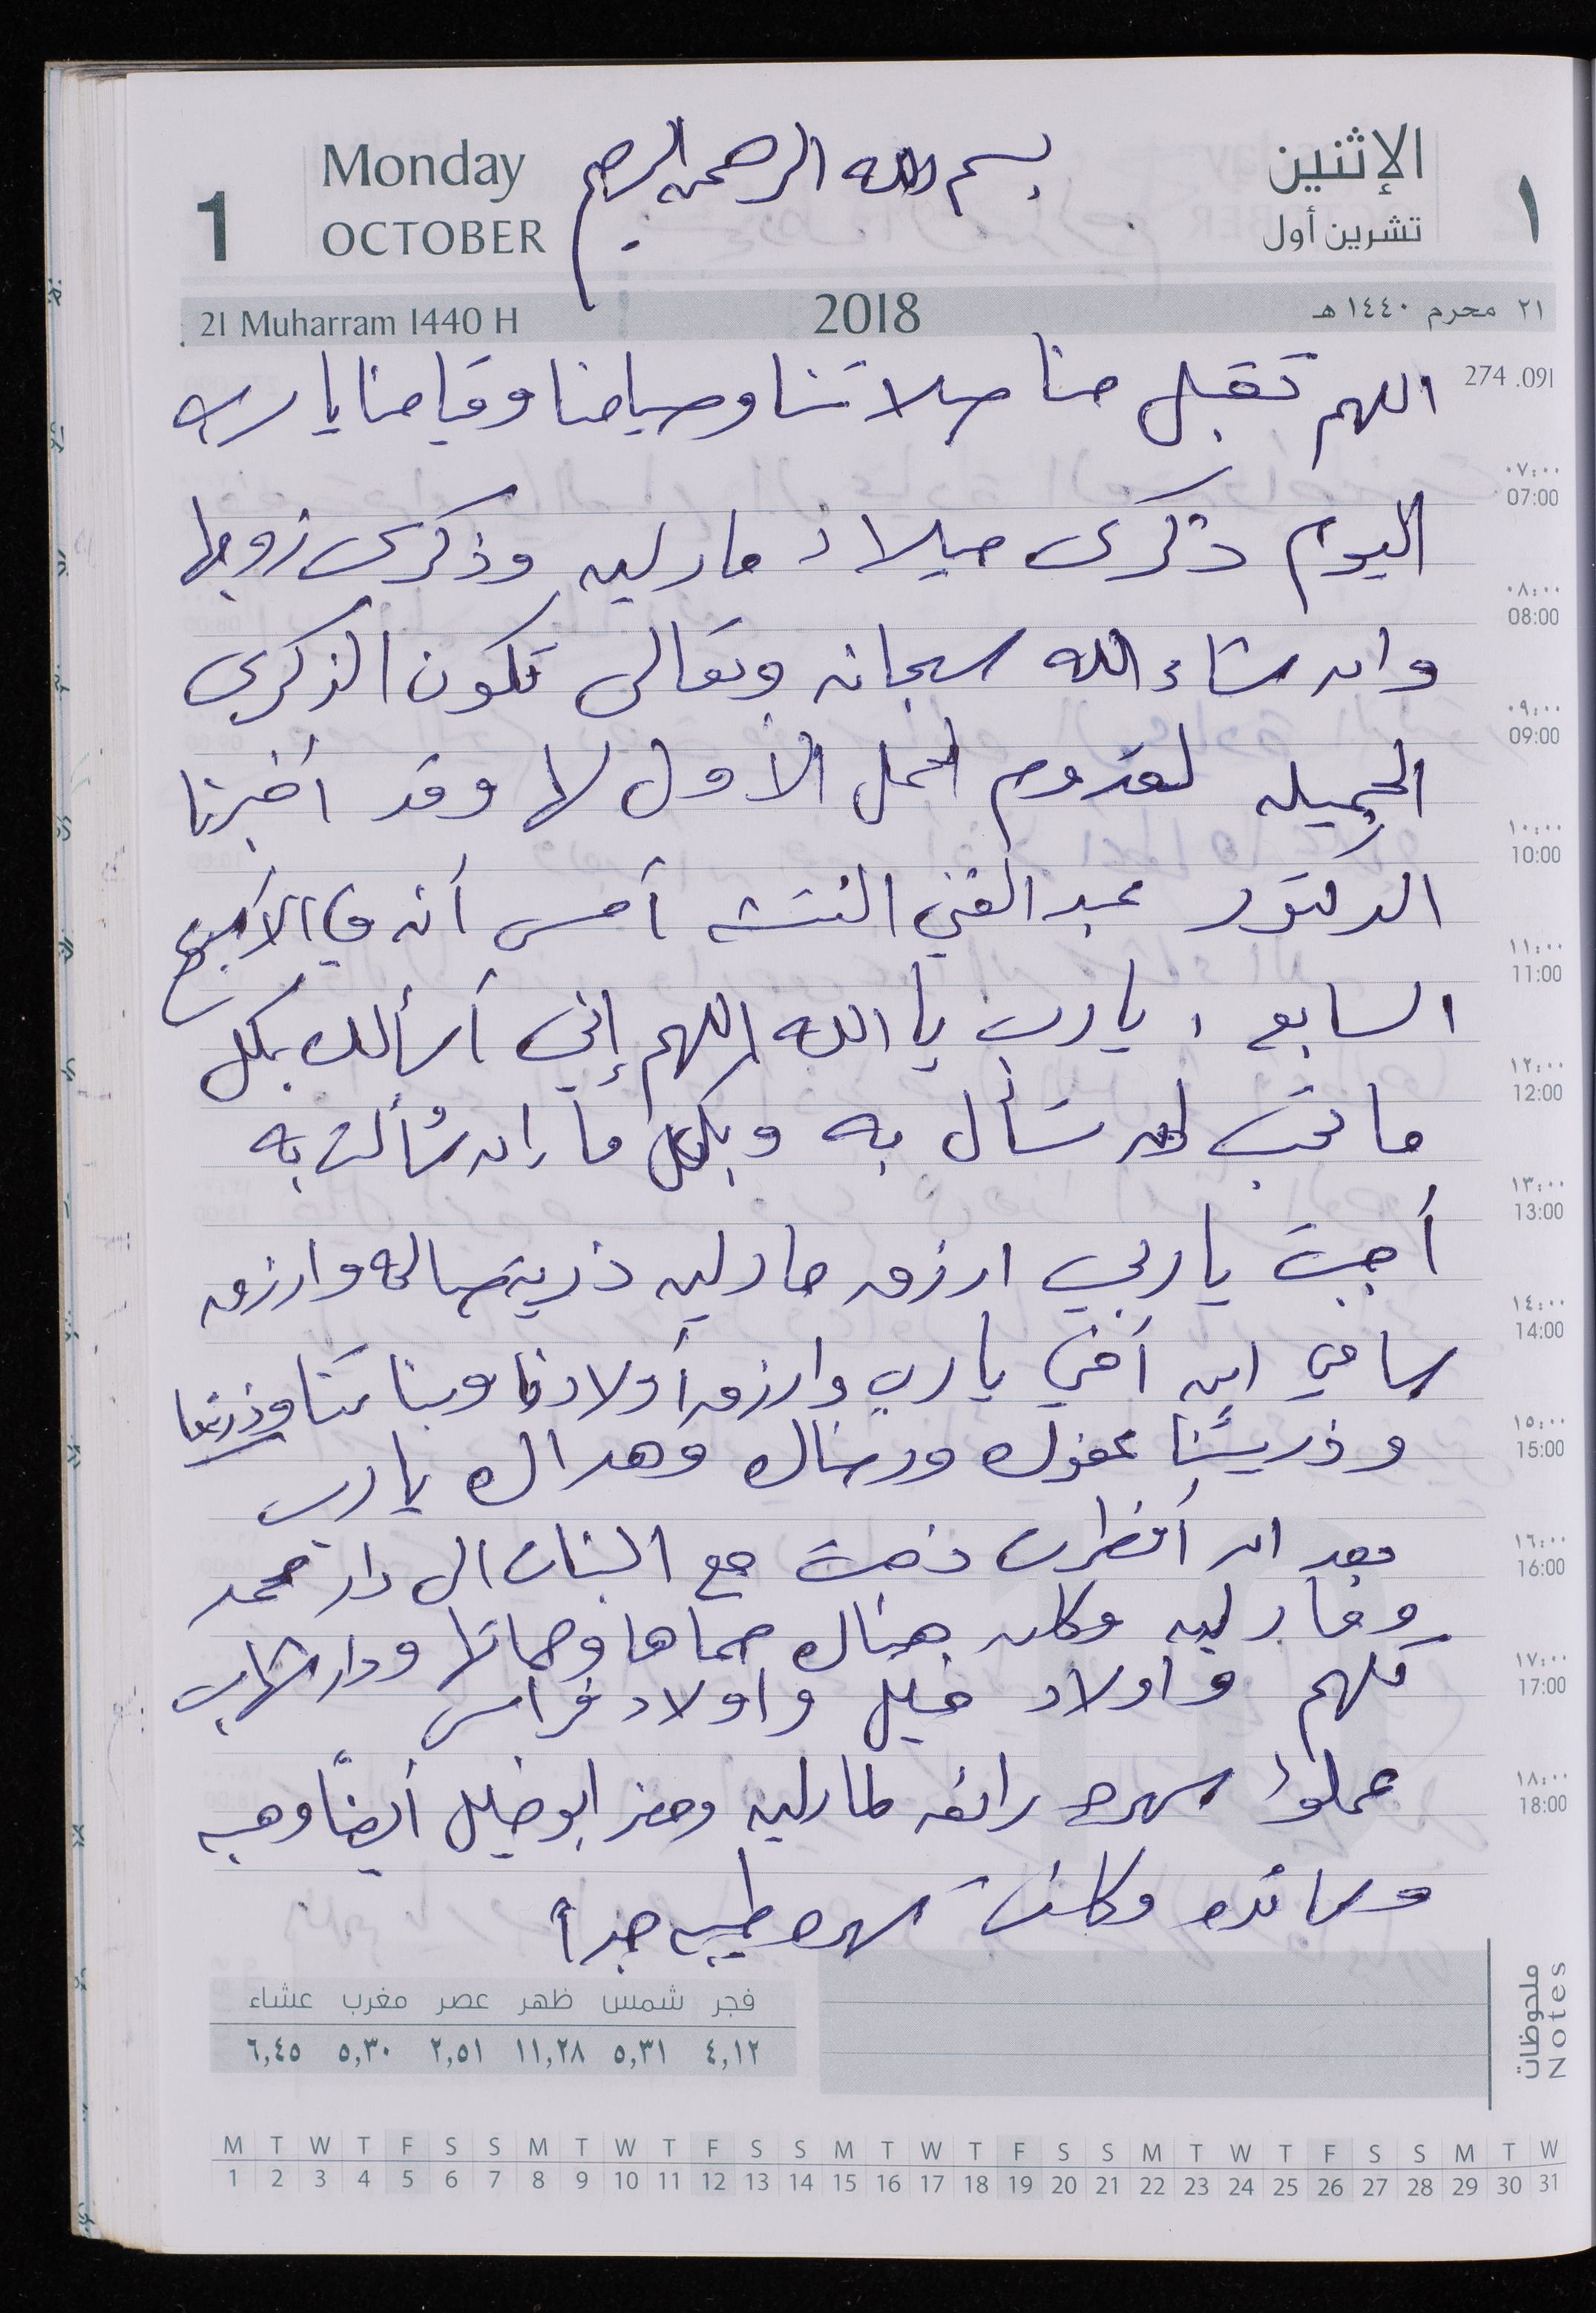 الإثنين
تشرين أول
١
Monday
OCTOBER
1
بسم الله الرحمن الرحيم
21 Muharram 1440 H
2018
٢١ محرم ١٤٤٠ هـ
274 .091
اللهم تقبل منا صلاتنا وصيامنا وقيامنا يا رب
اليوم ذكرى ميلاد مارلين وذكرى زوجها
وان شاء الله سبحانه وتعالى تكون الذكرى
الجميله لقدوم الحمل الأول لها وقد أخبرنا
الدكتور عبد الغني النتشه أمس أنه في الأسبوع
السابع ، يا رب يا الله اللهم إني أسألك بكل
ما تحب ان تسأل به وبكل ما ان سألت به
أجبت يا ربي ارزق مارلين ذرية صالحه وارزق
سامي ابن أخي يا رب وارزق أولادنا وبناتنا وذريتنا
وذريتنا عفوك ورضاك وهداك يا رب
بعد ان أفطرت ذهبت مع البنات الى دار محمد
ومارلين وكان هناك حماها وحماتها ودار شهاب
كلهم واولاد خليل واولاد فراس
عملوا سهره رائعه لمارلين وحضر ابو خليل أيضاً وهبه
وسائده وكانت سهره طيبه جداً
٠٧:٠٠
07:00
٠٨:٠٠
08:00
٠٩:٠٠
09:00
١٠:٠٠
10:00
١١:٠٠
11:00
١٢:٠٠
12:00
١٣:٠٠
13:00
١٤:٠٠
14:00
١٥:٠٠
15:00
١٦:٠٠
16:00
١٧:٠٠
17:00
١٨:٠٠
18:00
ملحوظات
Notes
فجر شمس ظهر عصر مغرب عشاء
٤,١٢ ٥,٣١ ١١,٢٨ ٢,٥١ ٥,٣٠ ٦,٤٥
M T W T F S S M T W T F S S M T W T F S S M T W T F S S M T W
1 2 3 4 5 6 7 8 9 10 11 12 13 14 15 16 17 18 19 20 21 22 23 24 25 26 27 28 29 30 31